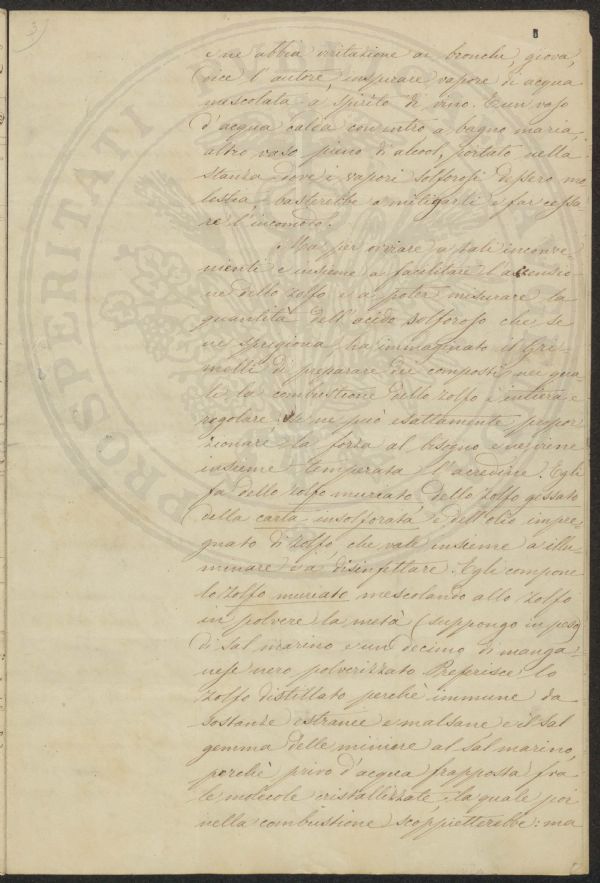 3
e ne abbia irritazione ai bronchi, giova,
dice l'autore, inspirare vapore di acqua
mescolata a spirito di vino. E un vaso
d'acqua calda con entro a bagno maria,
altro vaso pieno di alcool, portato nella
stanza dove i vapori solforosi dessero mo
lestia basterebbe a mitigarli e far cessa-
re l'incomodo.
Ma per ovviare a tali inconve-
nienti e insieme a facilitare l'ascensio
ne dello zolfo e a poter misurare la
quantità dell'acido solforoso che se
ne sprigiona ha immaginato il Gri-
molli di preparare dei composti nei qua-
li la combustione dello zolfo è intiera e
regolare, se ne può esattamente propor
zionare la forza al bisogno e ne viene
insieme temperata l'acredine. Egli
fa dello zolfo muriato, dello zolfo gissato
della carta insolforata e dell'olio impre-
gnato di zolfo, che vale insieme a illu-
minare e a disinfettare. Egli compone
lo zolfo muriato mescolando allo zolfo
in polvere la metà (suppongo in peso)
di sal marino e un decimo di manga-
nese nero polverizzato. Preferisce lo
zolfo distillato perchè immune da
sostanze estranee e malsane e il sal
gemma delle miniere al sal marino,
perchè privo d'acqua frapposta fra
le molecole cristallizzate, la quale poi
nella combustione scoppietterebbe: ma
PROSPERITATI